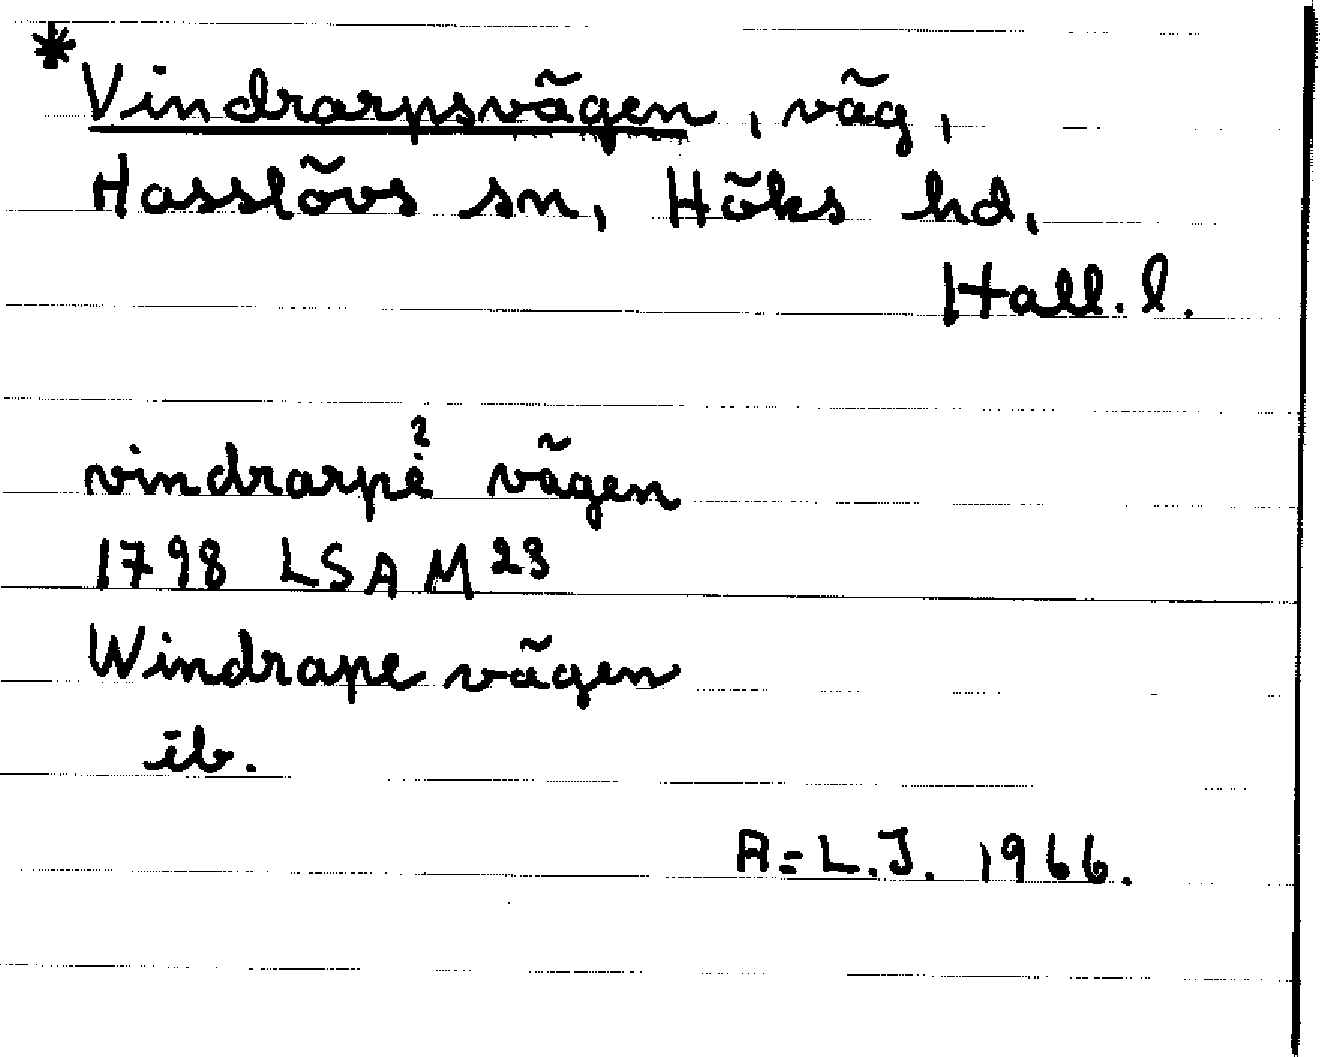 * Vindrarpsvägen, väg,
Hasslövs sn, Höks hd,
Hall. l.
vindrarpe? vägen
1798 LSA M23
Windrape vägen
ib.
A-L.J. 1966.